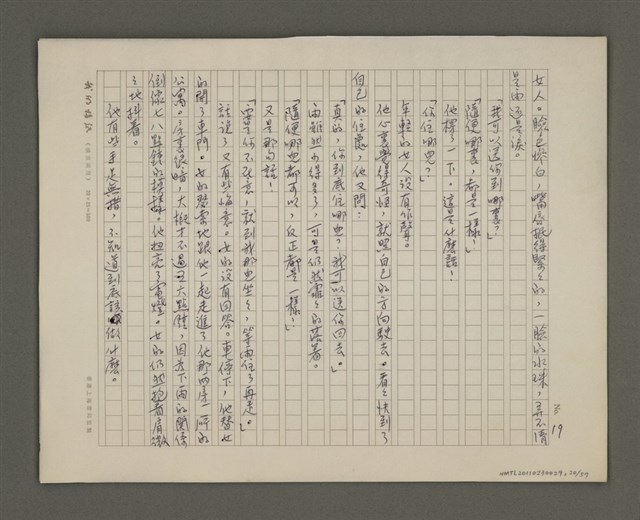 19
女人。臉色慘白，嘴唇抿得緊緊的，一臉的水珠，弄不清
是雨還是淚。
「我可以送你到哪裏？」
「隨便哪裏，都是一樣！」
他楞了一下。這是什麼話！
「你住哪兒？」
年輕的女人沒有作聲。
他心裏覺得奇怪，就照自己的方向駛去。看看快到了
自己的住處，他又問：
「真的，你到底住哪兒？我可以送你回去。」
雨雖然小得多了，可是仍然霏霏的落着。
「隨便哪兒都可以，反正都是一樣！」
又是那句話！
「要是你不在意，就到我那兒坐坐，等雨住了再走。」
話說了又有些悔意。女的沒有回答。車停下，他替女
的開了車門。女的瑟索地跟他一起走進了他那四房一所的
公寓。房裏很暗，大概才不過五點鐘，因為下雨的關係
倒像七八點鐘的模樣。他扭亮了電燈。女的仍然抱着肩微
微地抖着。
他有些手足無措，不知道到底該做什麼。